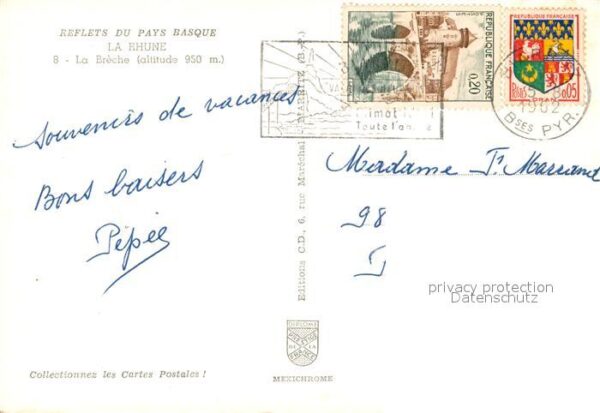 REFLETS DU PAYS BASQUE
LA RHUNE
8 - La Brèche (altitude 950 m.)
Souvenirs de vacances
Bons baisers
Pépée
Collectionnez les Cartes Postales !
Editions C.D., 6, rue Maréchal
BIARRITZ (B.-P.)
MEXICHROME
REPUBLIQUE FRANÇAISE
0,20
REPUBLIQUE FRANÇAISE
0,05
1962
BSES PYR.
Toute l'année
Madame
98
privacy protection
Datenschutz